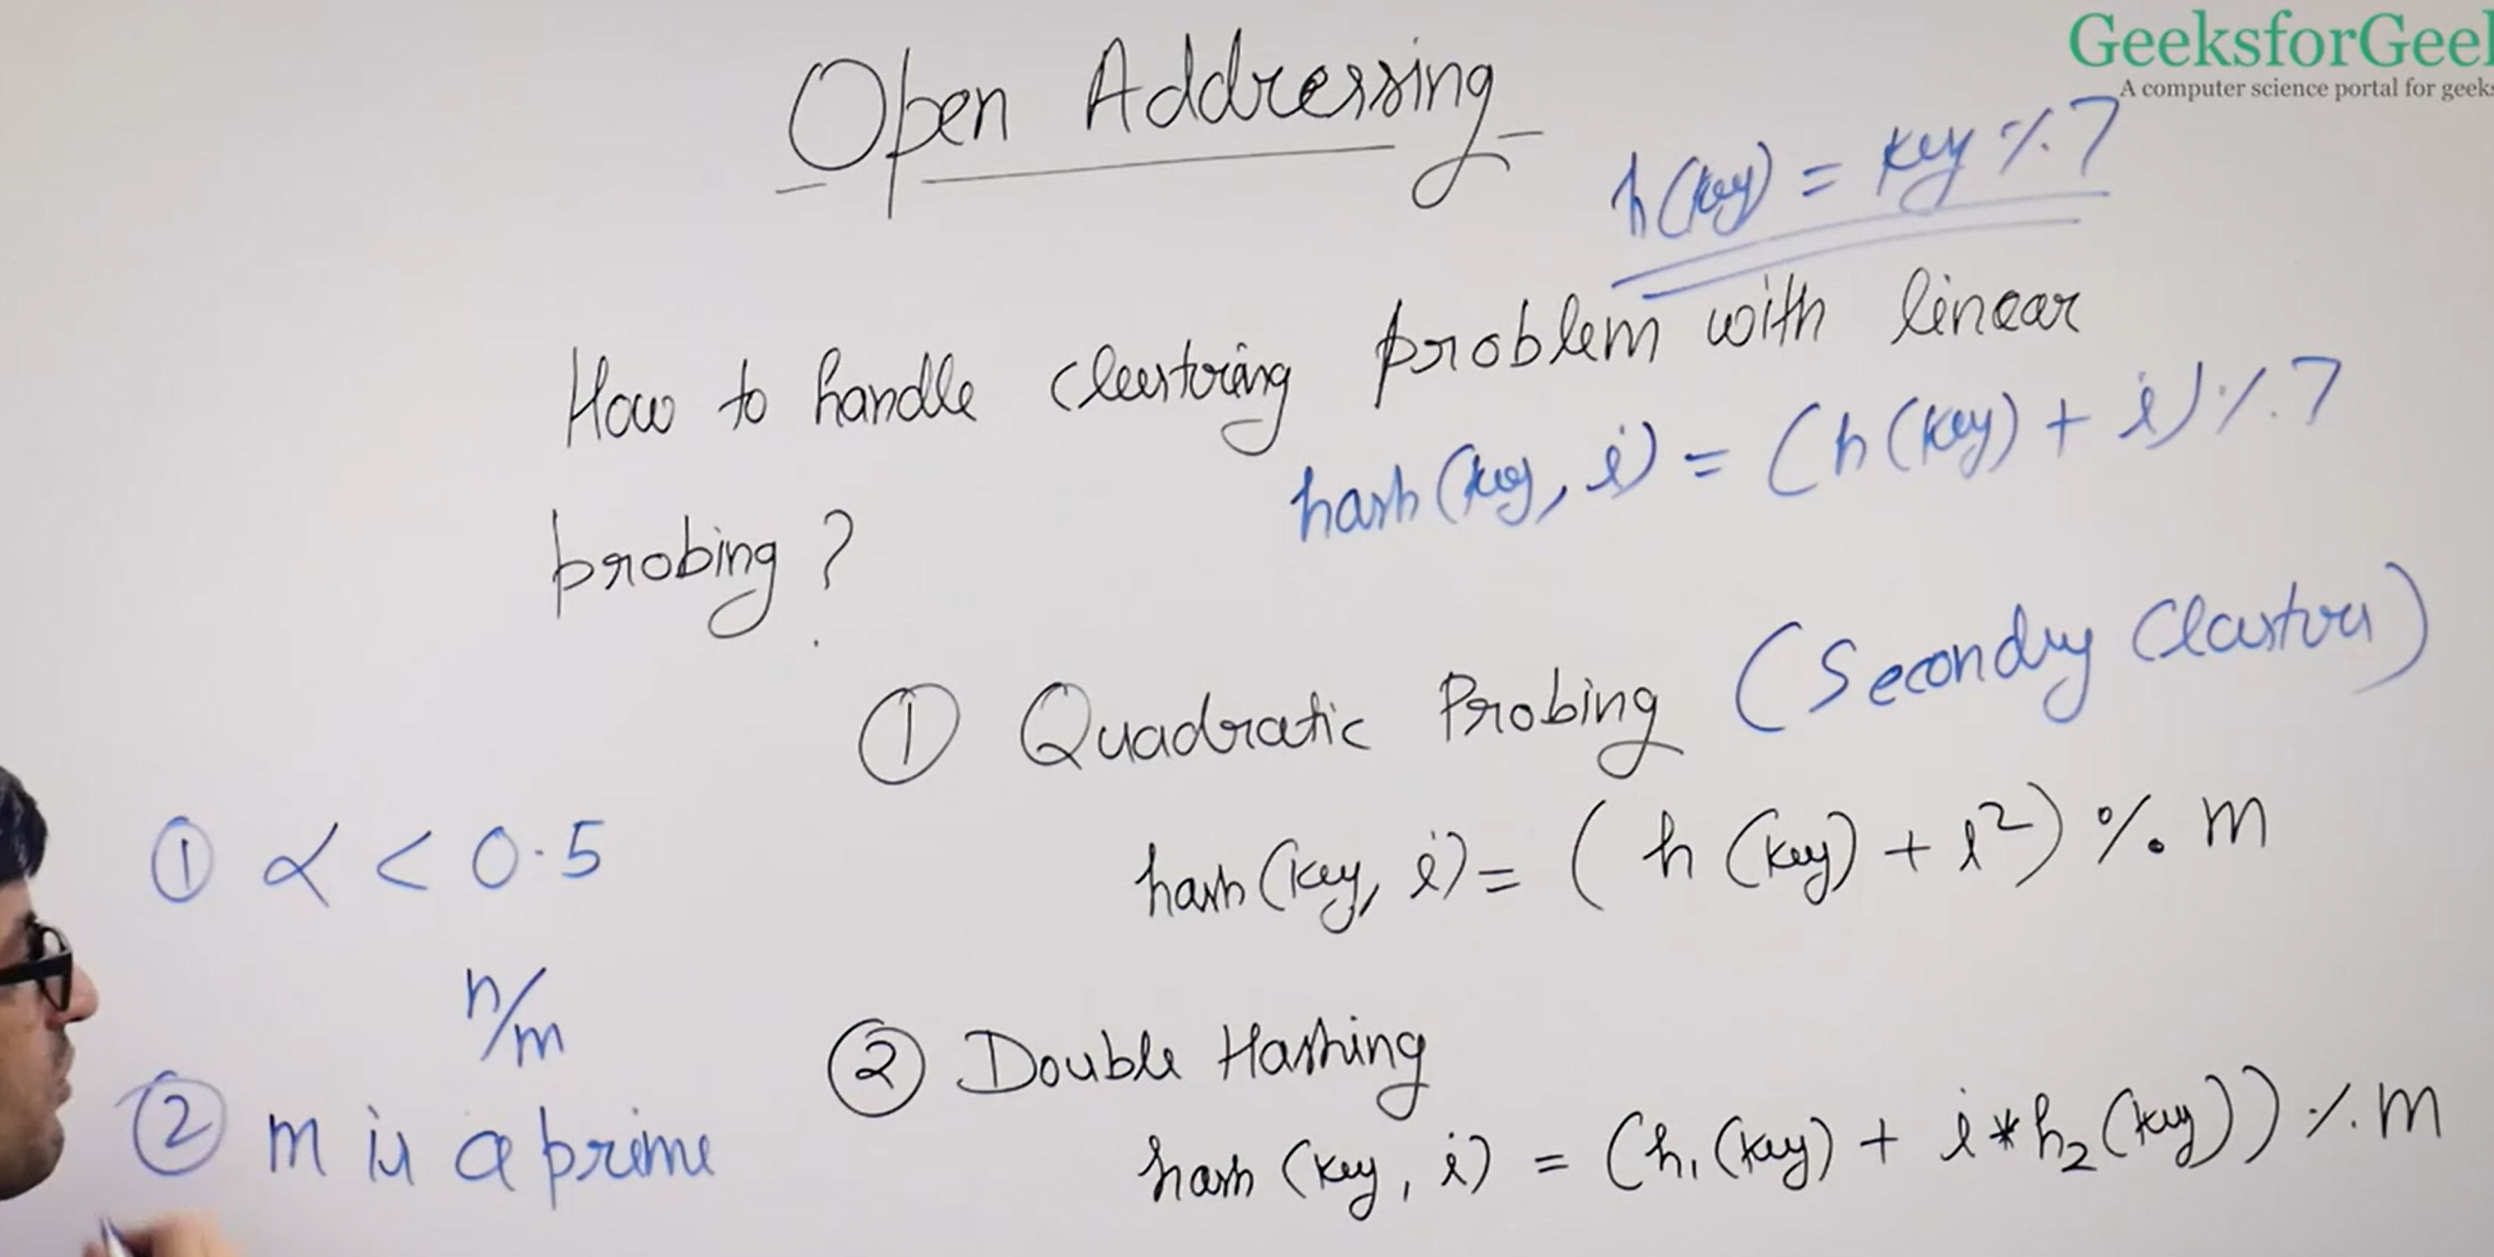 GeeksforGeek
A computer science portal for geeks
Open Addressing
h(key) = key % 7
How to handle clustering problem with linear
probing ?
hash(key, i) = (h(key) + i) % 7
① Quadratic Probing (Secondry Clusters)
hash(key, i) = (h(key) + i²) % m
① α < 0.5
n/m
② m is a prime
② Double Hashing
hash(key, i) = (h₁(key) + i * h₂(key)) % m